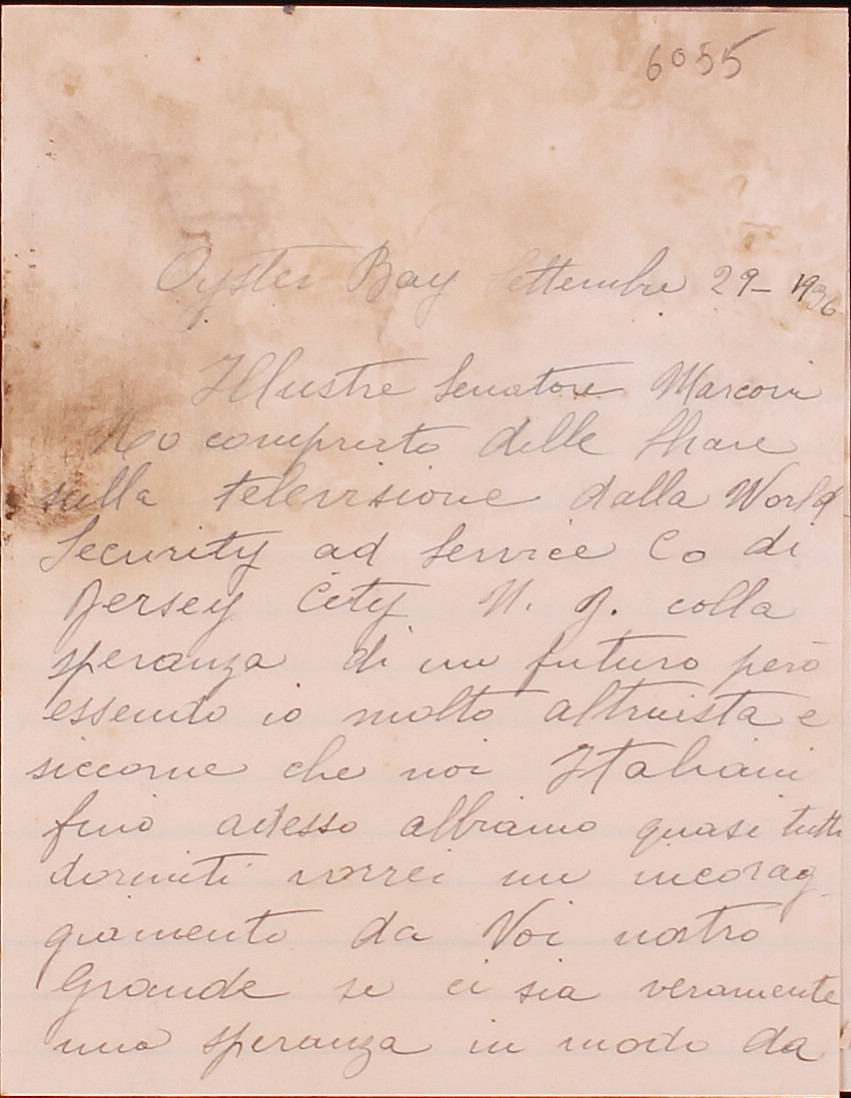 6055
Oyster Bay Settembre 29- 1936
Illustre Senatore Marconi
Ho comprato delle Share
sulla televisione dalla World
Security ad Service Co di
Jersey City N. J. colla
speranza di un futuro però
essendo io molto altruista e
siccome che noi Italiani
fino adesso abbiamo quasi tutti
dormiti vorrei un incorag-
giamento da Voi nostro
Grande se ci sia veramente
una speranza in modo da